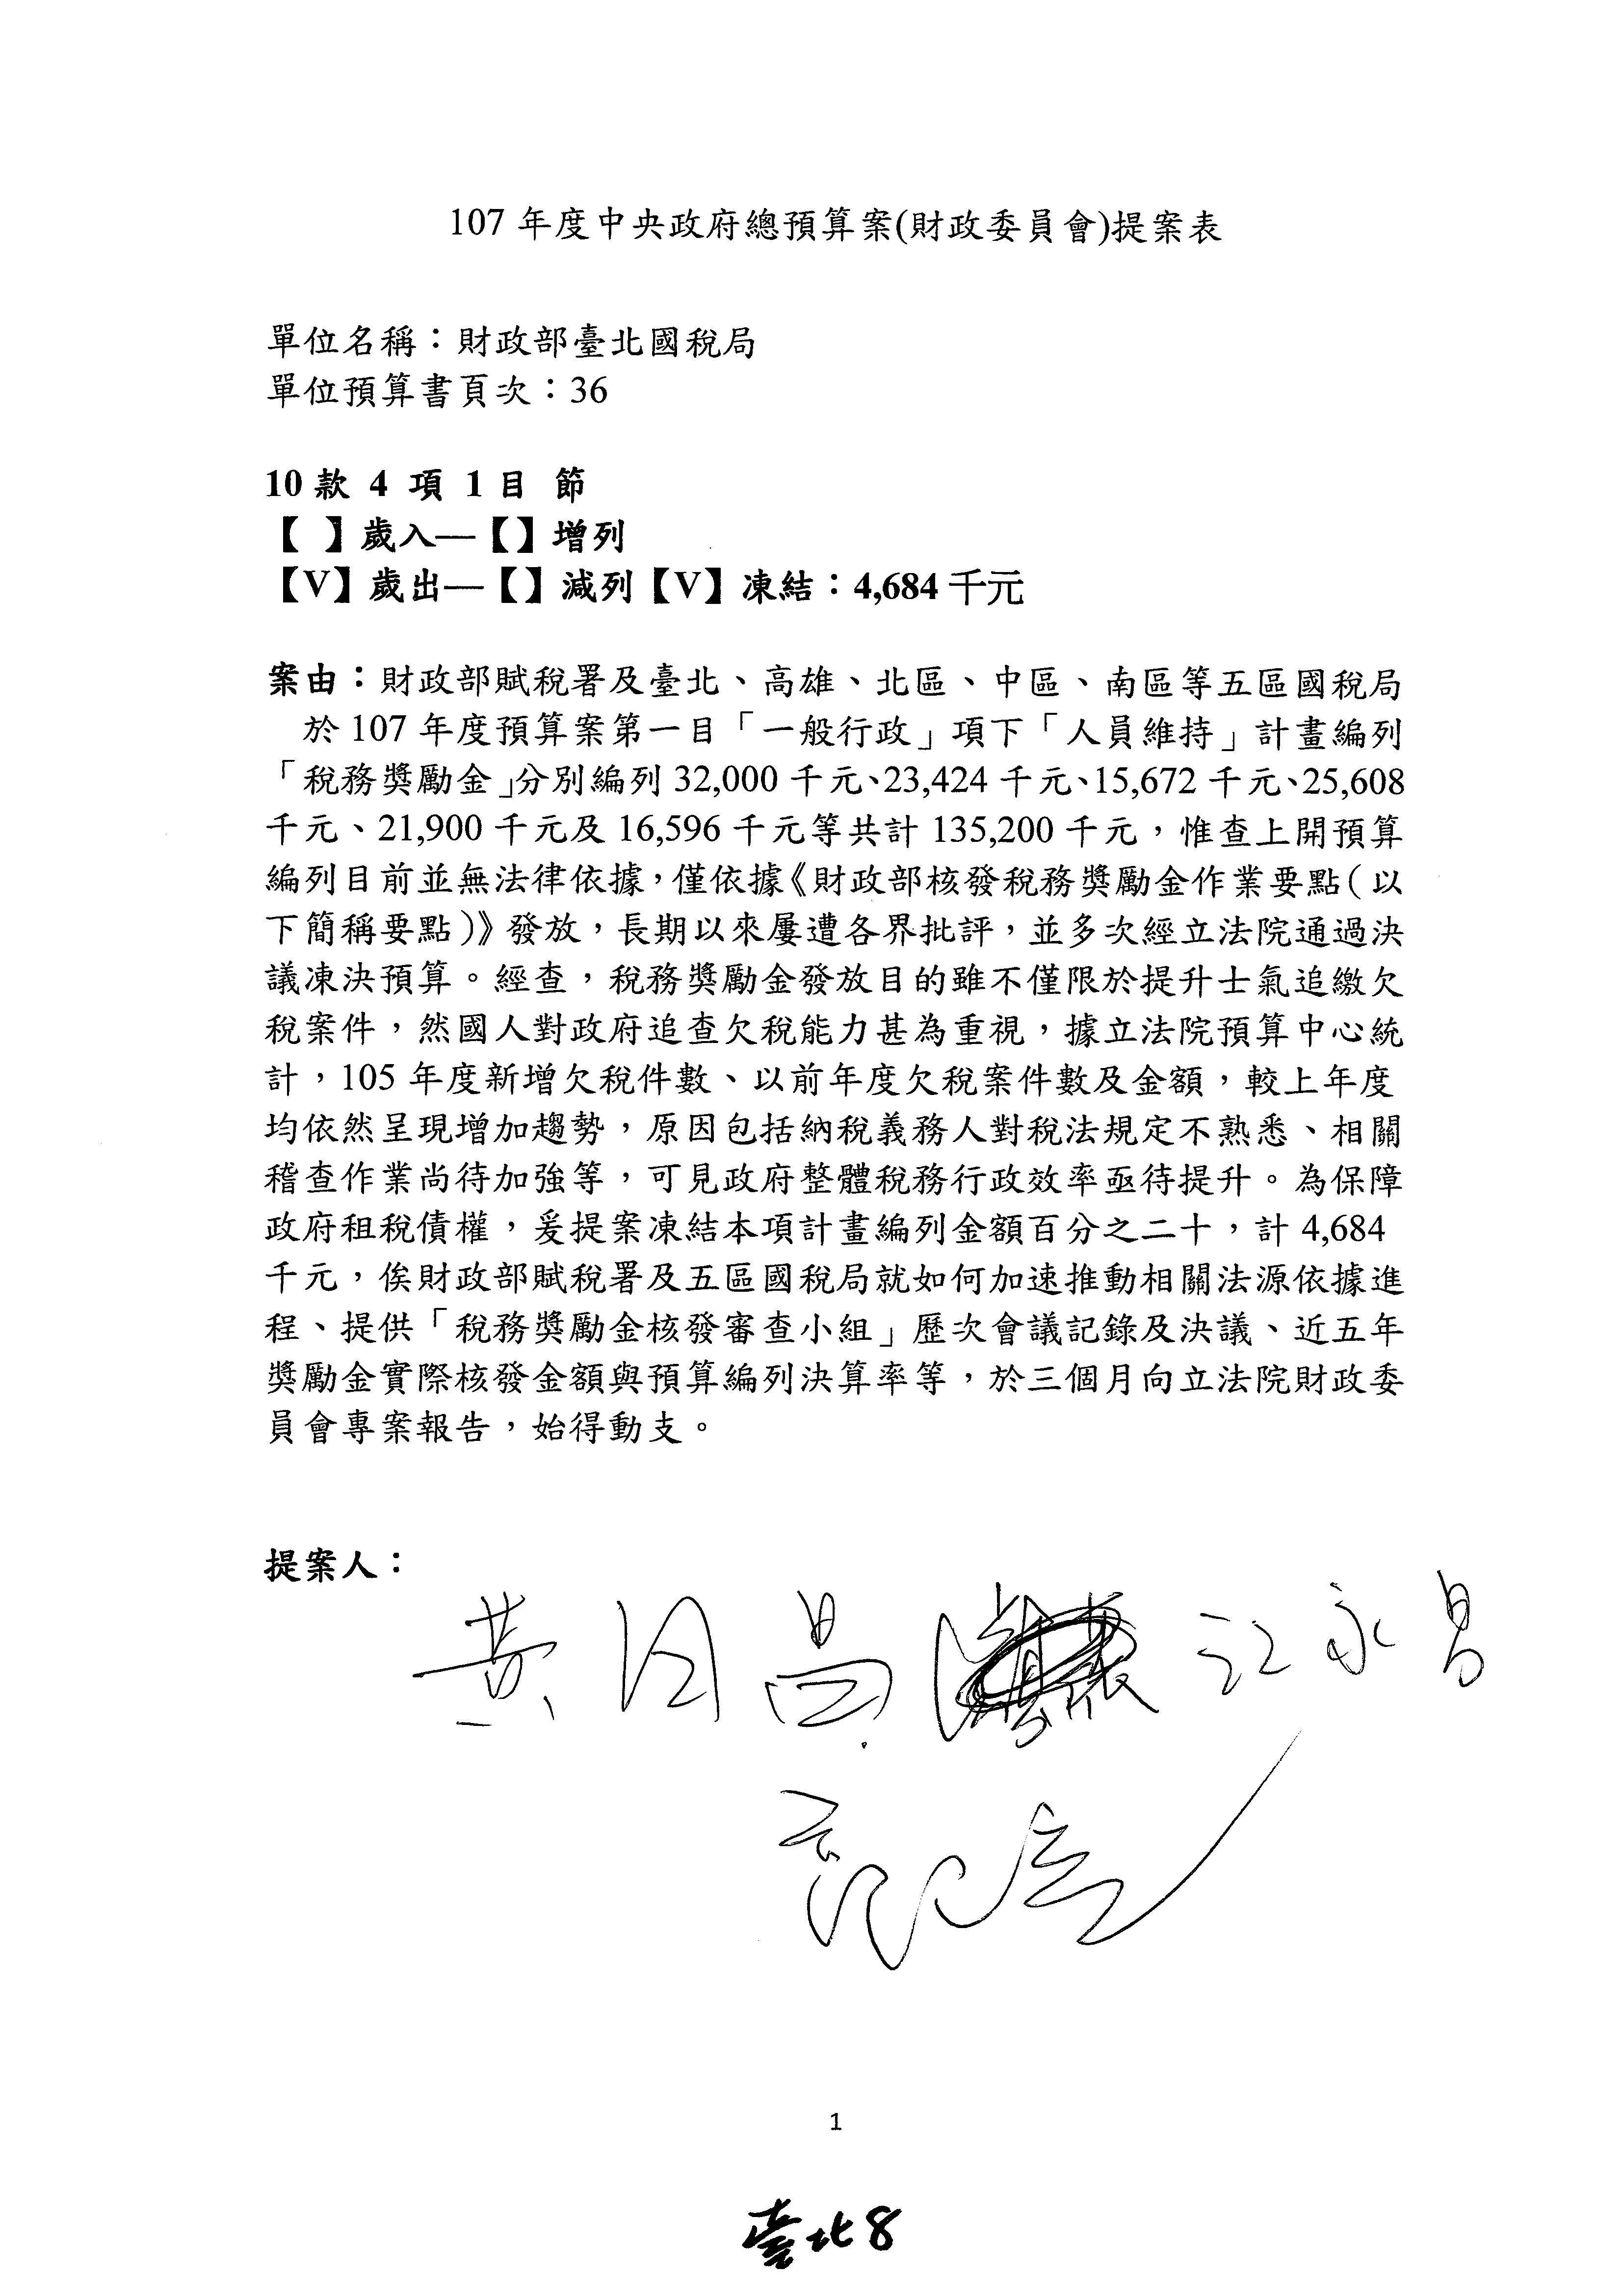 107 年度中央政府總預算案(財政委員會)提案表
單位名稱：財政部臺北國稅局
單位預算書頁次：36
10 款 4 項 1 目 節
【 】歲入—【】增列
【V】歲出—【】減列【V】凍結：4,684 千元
案由：財政部賦稅署及臺北、高雄、北區、中區、南區等五區國稅局
於 107 年度預算案第一目「一般行政」項下「人員維持」計畫編列
「稅務獎勵金」分別編列 32,000 千元、23,424 千元、15,672 千元、25,608
千元、21,900 千元及 16,596 千元等共計 135,200 千元，惟查上開預算
編列目前並無法律依據，僅依據《財政部核發稅務獎勵金作業要點（以
下簡稱要點）》發放，長期以來屢遭各界批評，並多次經立法院通過決
議凍決預算。經查，稅務獎勵金發放目的雖不僅限於提升士氣追繳欠
稅案件，然國人對政府追查欠稅能力甚為重視，據立法院預算中心統
計，105 年度新增欠稅件數、以前年度欠稅案件數及金額，較上年度
均依然呈現增加趨勢，原因包括納稅義務人對稅法規定不熟悉、相關
稽查作業尚待加強等，可見政府整體稅務行政效率亟待提升。為保障
政府租稅債權，爰提案凍結本項計畫編列金額百分之二十，計 4,684
千元，俟財政部賦稅署及五區國稅局就如何加速推動相關法源依據進
程、提供「稅務獎勵金核發審查小組」歷次會議記錄及決議、近五年
獎勵金實際核發金額與預算編列決算率等，於三個月向立法院財政委
員會專案報告，始得動支。
提案人：
黃國昌 江永昌
1
臺北8